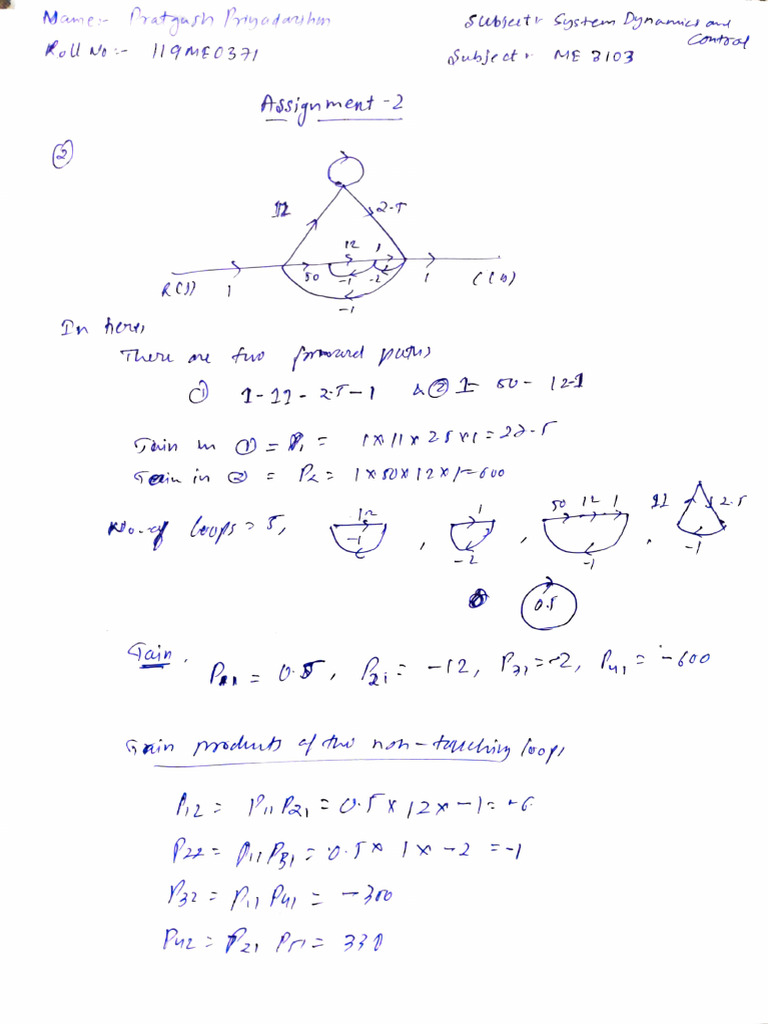 Name:- Pratyush Priyadarshm
Subject: System Dynamics and Control
Roll No:- 119ME0371
Subject: ME 3103
Assignment-2
②
11
2.5
12
1
R(s)
1
50
-1
-2
1
C(s)
-1
In here,
There are two forward paths,
① 1-11-2.5-1 & ② 1- 50- 12-1
Gain in ① = P1 = 1x11x2.5x1=27.5
Gain in ② = P2 = 1x50x12x1=600
No. of loops = 5,
12
-1
,
1
-2
,
50 12 1
-1
,
11
2.5
-1
0.5
Gain.
P11 = 0.5, P21 = -12, P31=-2, P41 = -600
Gain products of two non-touching loops
P12 = P11P21 = 0.5x12x-1=-6
P22= P11P31=0.5x 1x-2 =-1
P32 = P11P41 = -300
P42 = P21 P51= 330